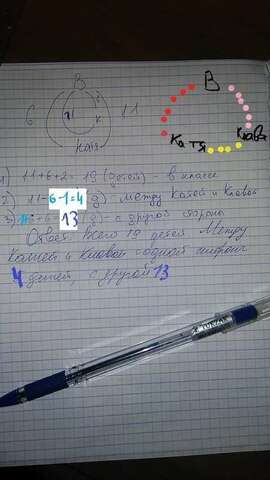 В
В
6
11
К
Катя
Клава
Катя
1) 11+6+2=19 (детей) - в классе
2) 11-6-1=4 (д) - между Катей и Клавой
3) 11+6 13 (д) - с другой стороны
Ответ: всего 19 детей. Между
Катей и Клавой с одной стороны
4 детей с другой 13